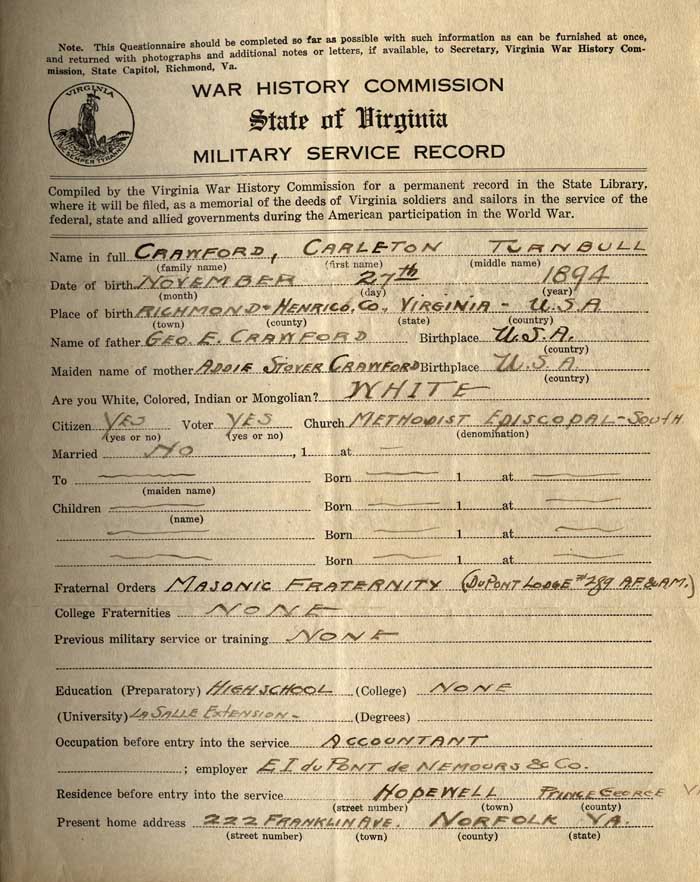 Note. This Questionnaire should be completed so far as possible with such information as can be furnished at once,
and returned with photographs and additional notes or letters, if available, to Secretary, Virginia War History Com-
mission, State Capitol, Richmond, Va.
VIRGINIA
SIC SEMPER TYRANNIS
WAR HISTORY COMMISSION
State of Virginia
MILITARY SERVICE RECORD
Compiled by the Virginia War History Commission for a permanent record in the State Library,
where it will be filed, as a memorial of the deeds of Virginia soldiers and sailors in the service of the
federal, state and allied governments during the American participation in the World War.
Name in full CRAWFORD, CARLETON TURNBULL
(family name) (first name) (middle name)
Date of birth NOVEMBER 27th 1894
(month) (day) (year)
Place of birth RICHMOND - HENRICO, CO, VIRGINIA - U.S.A
(town) (county) (state) (country)
Name of father GEO. E. CRAWFORD Birthplace U.S.A.
(country)
Maiden name of mother ADDIE STOVER CRAWFORD Birthplace U.S.A.
(country)
Are you White, Colored, Indian or Mongolian? WHITE
Citizen YES Voter YES Church METHODIST EPISCOPAL - SOUTH
(yes or no) (yes or no) (denomination)
Married NO , 1 at
To Born 1 at
(maiden name)
Children Born 1 at
(name)
Born 1 at
Born 1 at
Fraternal Orders MASONIC FRATERNITY (DUPONT LODGE #289 A.F.&A.M.)
College Fraternities NONE
Previous military service or training NONE
Education (Preparatory) HIGH SCHOOL (College) NONE
(University) LA SALLE EXTENSION - (Degrees)
Occupation before entry into the service ACCOUNTANT
; employer E I du PONT de NEMOURS & CO.
Residence before entry into the service HOPEWELL PRINCE GEORGE
(street number) (town) (county)
Present home address 222 FRANKLIN AVE. NORFOLK VA.
(street number) (town) (county) (state)